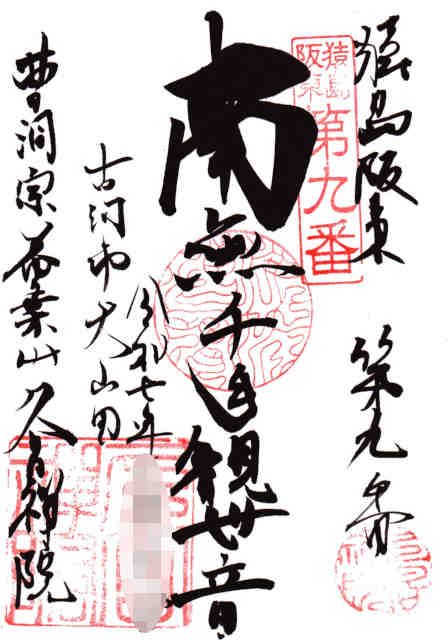 猿島阪東
第九番
猿島
阪東
第九番
南無千手観世音
令和七年
古河市大山田
曹洞宗 山 吉祥院